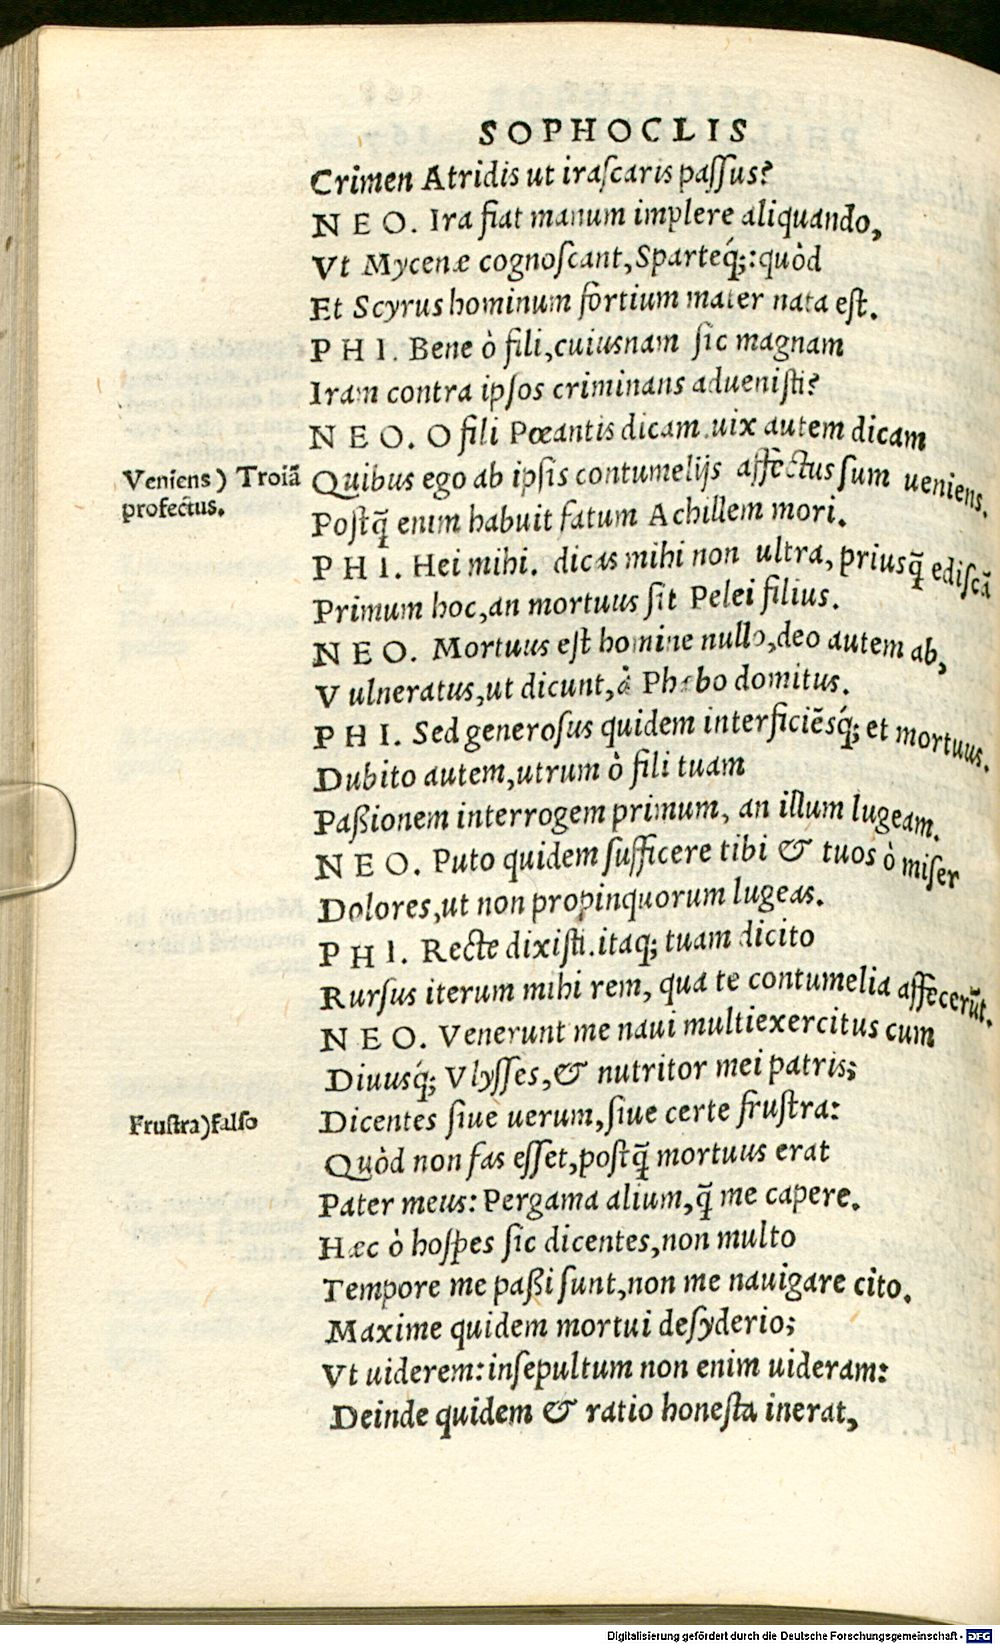 SOPHOCLIS
Crimen Atridis ut iraſcaris paſſus?
N E O. Ira fiat manum implere aliquando,
Vt Mycenæ cognoſcant, Sparteq́;: quòd
Et Scyrus hominum fortium mater nata eſt.
P H I. Bene ò fili, cuiusnam ſic magnam
Iram contra ipſos criminans adueniſti?
N E O. O fili Pœantis dicam. uix autem dicam
Veniens) Troiã
Quibus ego ab ipſis contumelijs affectus ſum ueniens.
profectus.
Poſtq̃ enim habuit fatum Achillem mori.
P H I. Hei mihi. dicas mihi non ultra, priusq̃ ediſcã
Primum hoc, an mortuus ſit Pelei filius.
N E O. Mortuus eſt homine nullo, deo autem ab,
V ulneratus, ut dicunt, à Phœbo domitus.
P H I. Sed generoſus quidem interficiẽsq́; et mortuus.
Dubito autem, utrum ò fili tuam
Paßionem interrogem primum, an illum lugeam.
N E O. Puto quidem ſufficere tibi & tuos ò miſer
Dolores, ut non propinquorum lugeas.
P H I. Recte dixiſti. itaq; tuam dicito
Rurſus iterum mihi rem, qua te contumelia affecerũt.
N E O. Venerunt me naui multiexercitus cum
Diuusq́; Vlyſſes, & nutritor mei patris;
Fruſtra) falſo
Dicentes ſiue uerum, ſiue certe fruſtra:
Quòd non fas eſſet, poſtq̃ mortuus erat
Pater meus: Pergama alium, q̃ me capere.
Hæc ò hoſpes ſic dicentes, non multo
Tempore me paßi ſunt, non me nauigare cito.
Maxime quidem mortui deſyderio;
Vt uiderem: inſepultum non enim uideram:
Deinde quidem & ratio honeſta inerat,
Digitalisierung gefördert durch die Deutsche Forschungsgemeinschaft - DFG